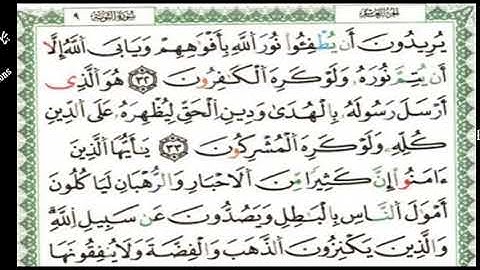 الجزء العاشر سورة التوبة ٩
يُرِيدُونَ أَن يُطْفِـُٔوا۟ نُورَ ٱللَّهِ بِأَفْوَٰهِهِمْ وَيَأْبَى ٱللَّهُ إِلَّآ
أَن يُتِمَّ نُورَهُۥ وَلَوْ كَرِهَ ٱلْكَٰفِرُونَ ٣٢ هُوَ ٱلَّذِىٓ
أَرْسَلَ رَسُولَهُۥ بِٱلْهُدَىٰ وَدِينِ ٱلْحَقِّ لِيُظْهِرَهُۥ عَلَى ٱلدِّينِ
كُلِّهِۦ وَلَوْ كَرِهَ ٱلْمُشْرِكُونَ ٣٣ يَٰٓأَيُّهَا ٱلَّذِينَ
ءَامَنُوٓا۟ إِنَّ كَثِيرًا مِّنَ ٱلْأَحْبَارِ وَٱلرُّهْبَانِ لَيَأْكُلُونَ
أَمْوَٰلَ ٱلنَّاسِ بِٱلْبَٰطِلِ وَيَصُدُّونَ عَن سَبِيلِ ٱللَّهِ
وَٱلَّذِينَ يَكْنِزُونَ ٱلذَّهَبَ وَٱلْفِضَّةَ وَلَا يُنفِقُونَهَا